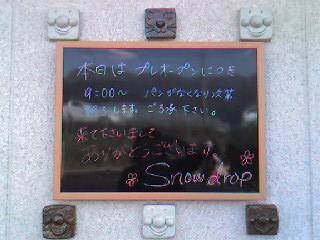 本日は プレオープンにつき
9:00〜 パンがなくなり次第
終了します。ご了承下さい。
来て下さいまして
ありがとうございます
Snow drop